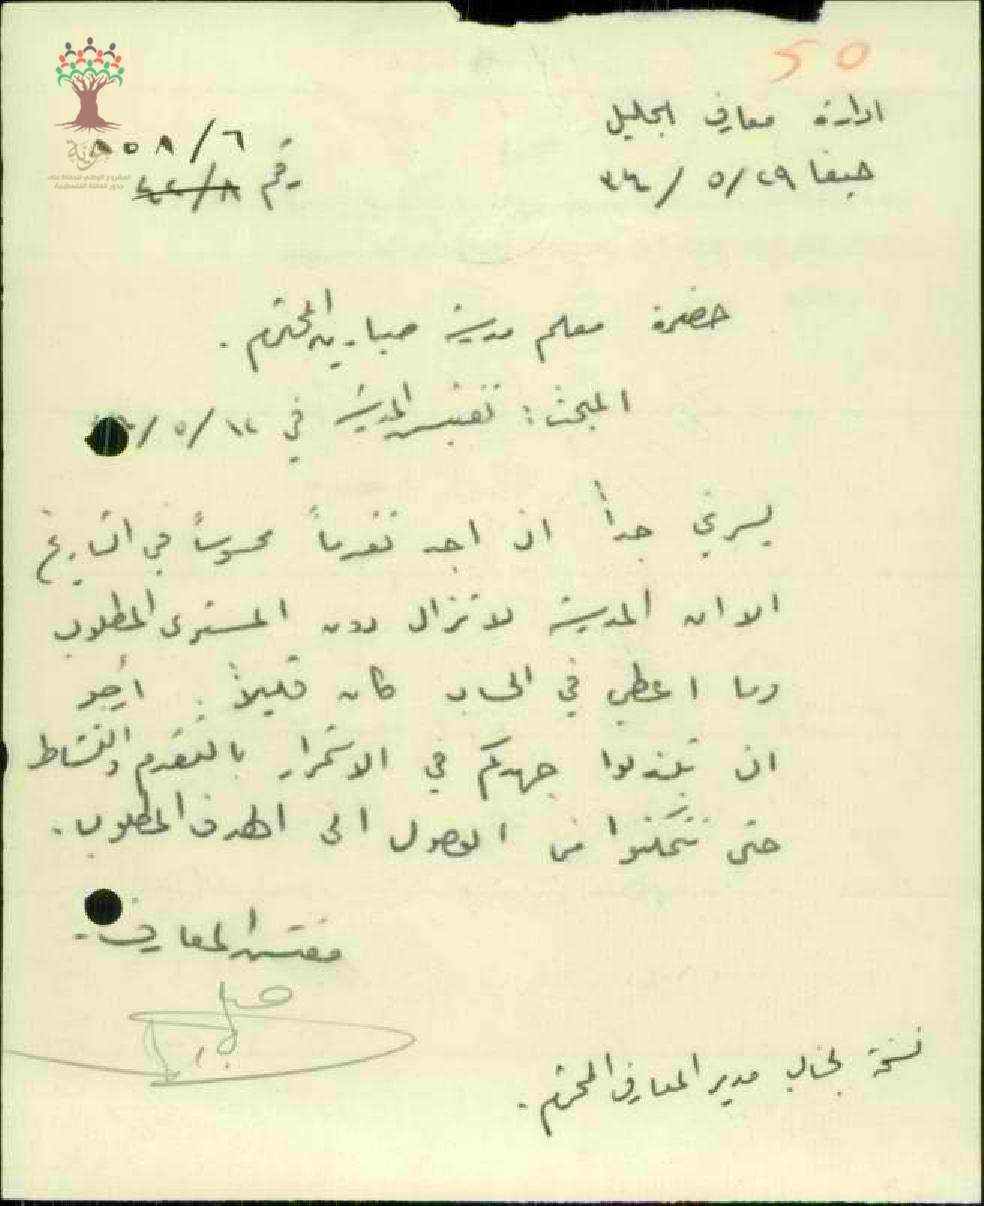 50
ادارة معارف الجليل
حيفا ٢٩/٥/٣٤
٦/٨٥٨
رقم ٨/٤٤
هوية
المشروع الوطني للحفاظ على
جذور العائلة الفلسطينية
حضرة معلم مدرسة صبارين المحترم.
المبحث: تفتيش المدرسة في ١٤/٥/
يسرني جداً ان اجد تقدماً محسوساً في التاريخ
الا ان المدرسة لا تزال دون المستوى المطلوب
وما اعطي في الحساب كان قليلاً. أرجو
ان تبذلوا جهدكم في الاستمرار بالتقدم والنشاط
حتى تتمكنوا من الوصول الى الهدف المطلوب.
مفتش المعارف
نسخة لجناب مدير المعارف المحترم.